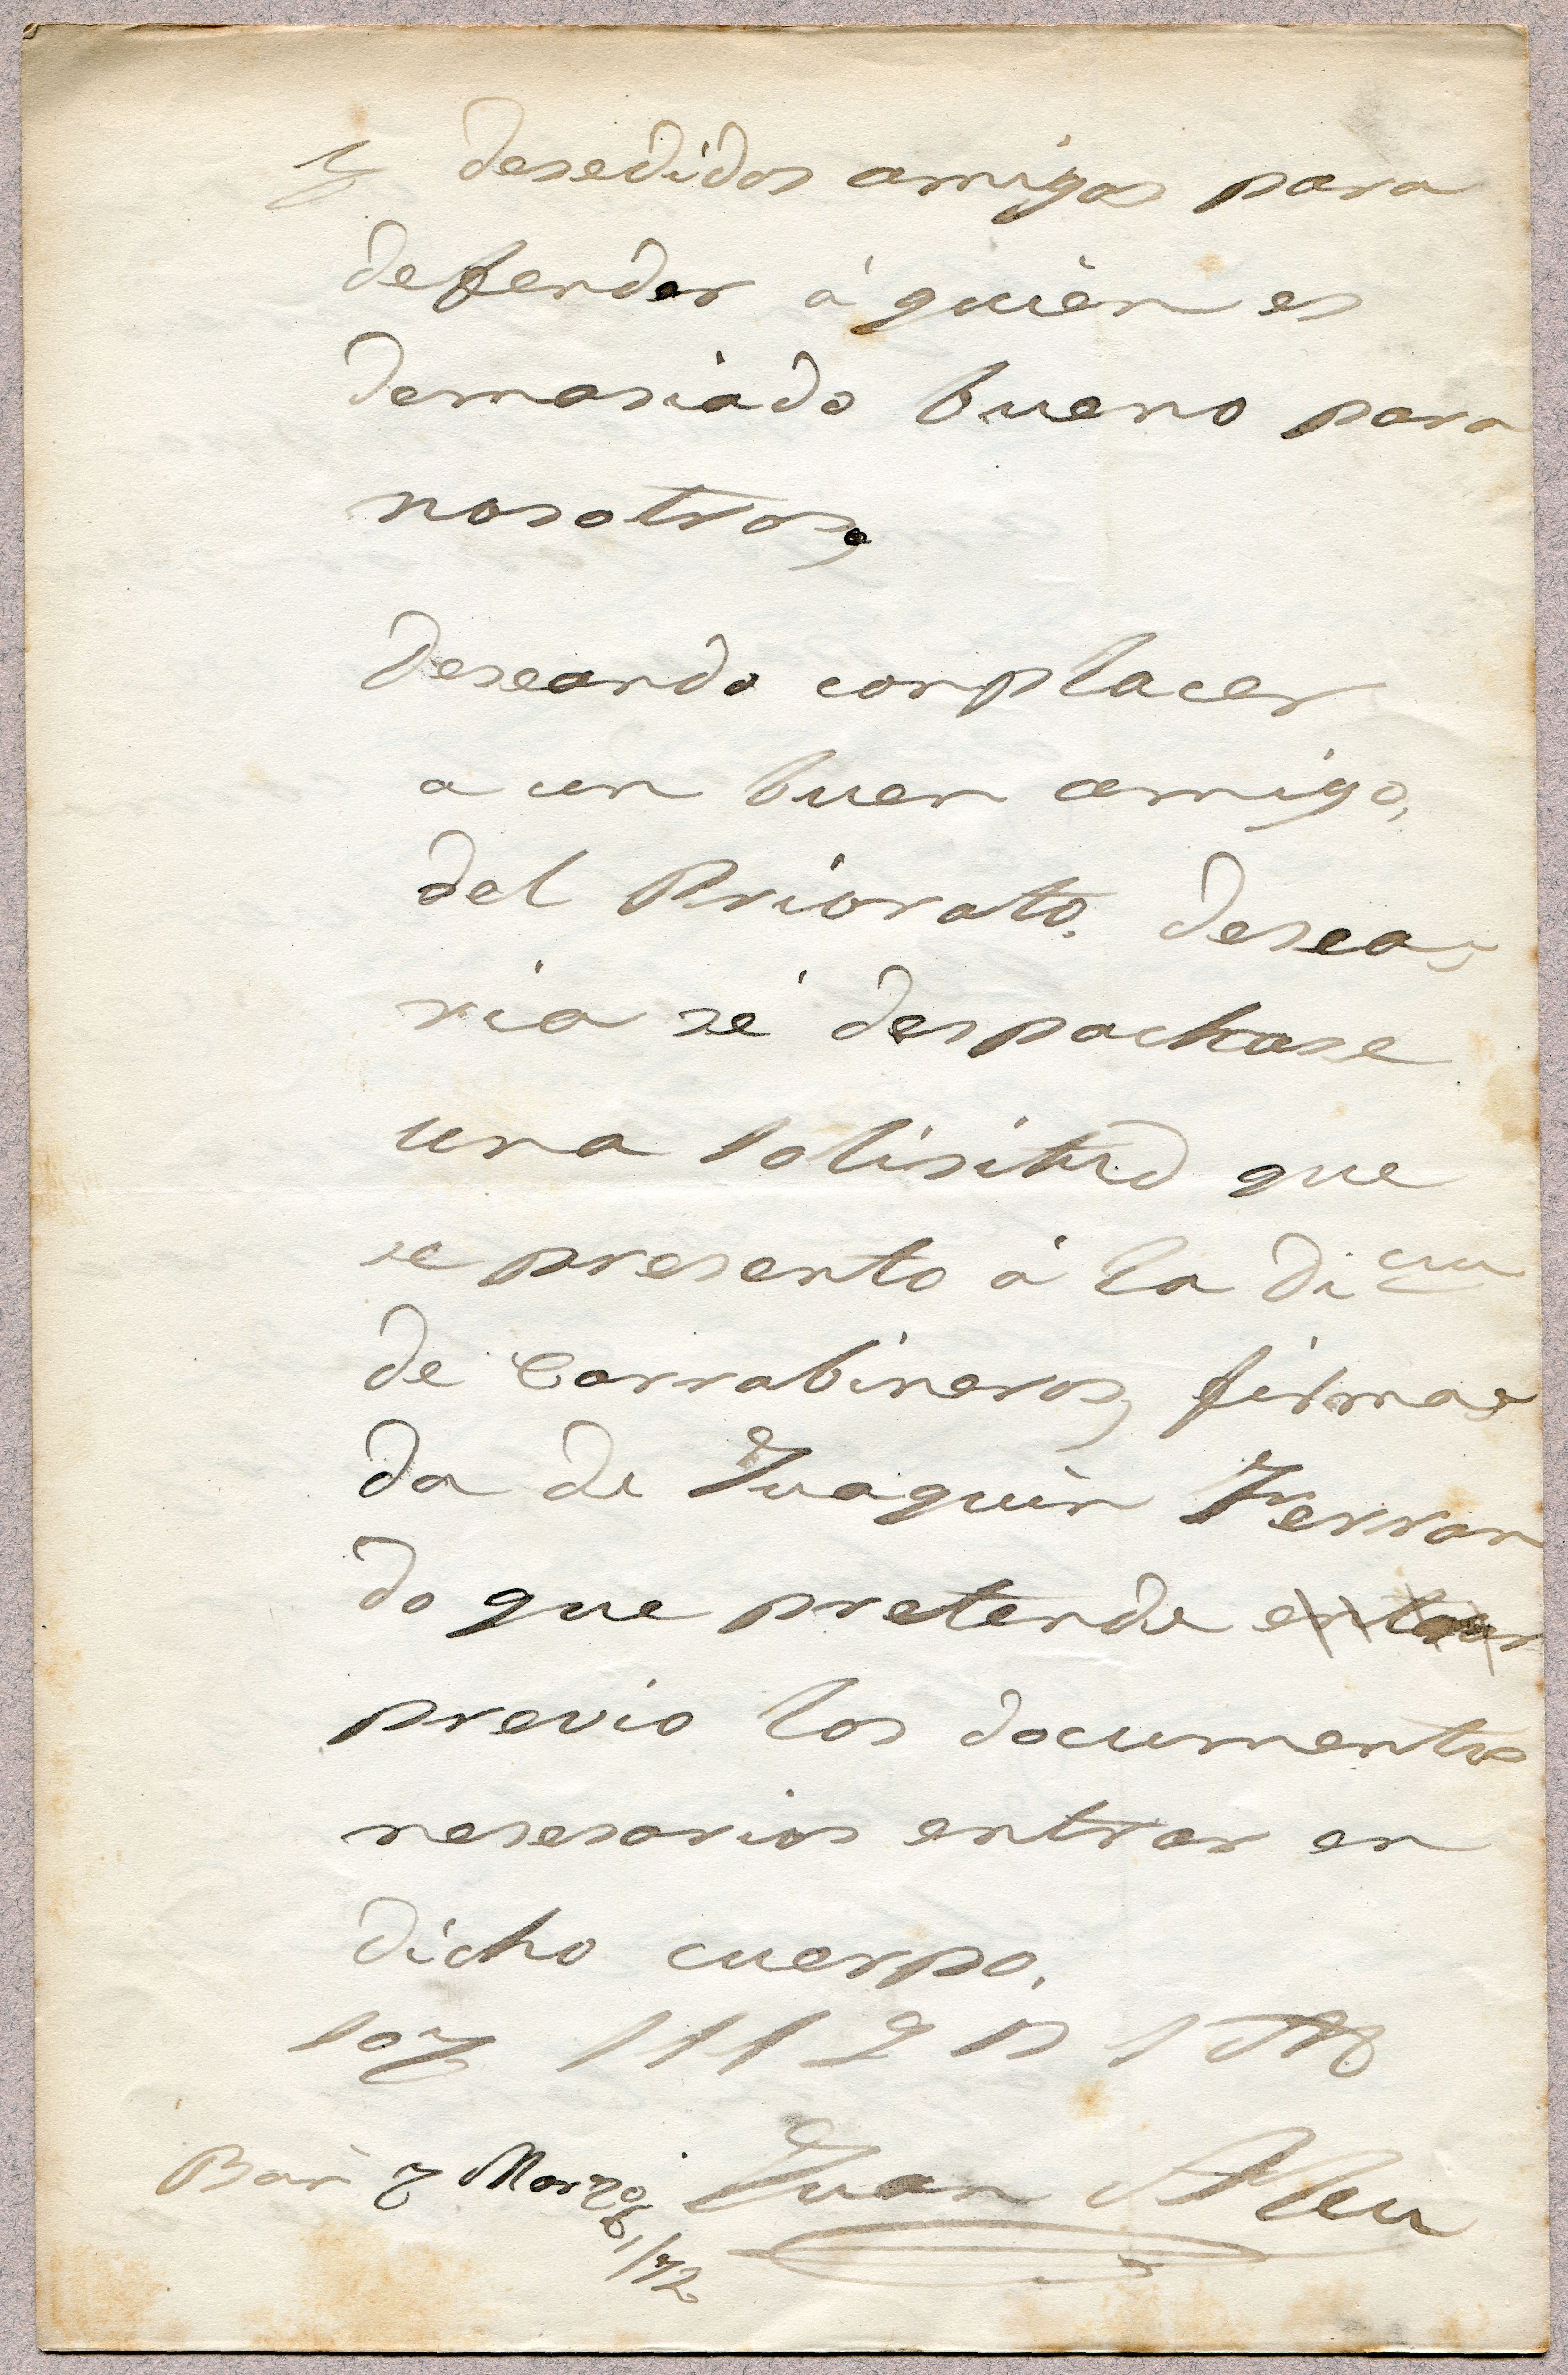 y desedidos amigos para
defender á quien es
demasiado bueno para
nosotros.
Deseando conplacer
a un buen amigo,
del Priorato. desea-
ria se despachase
una solisitud que
se presento á la Dicᵒⁿ
de Carrabineros, firma-
da de Juaquin Ferran
do que pretende entrar
previo los documentos
nesesarios entrar en
dicho cuerpo.
Juan Aleu
Barˢ 7 Marzo /72